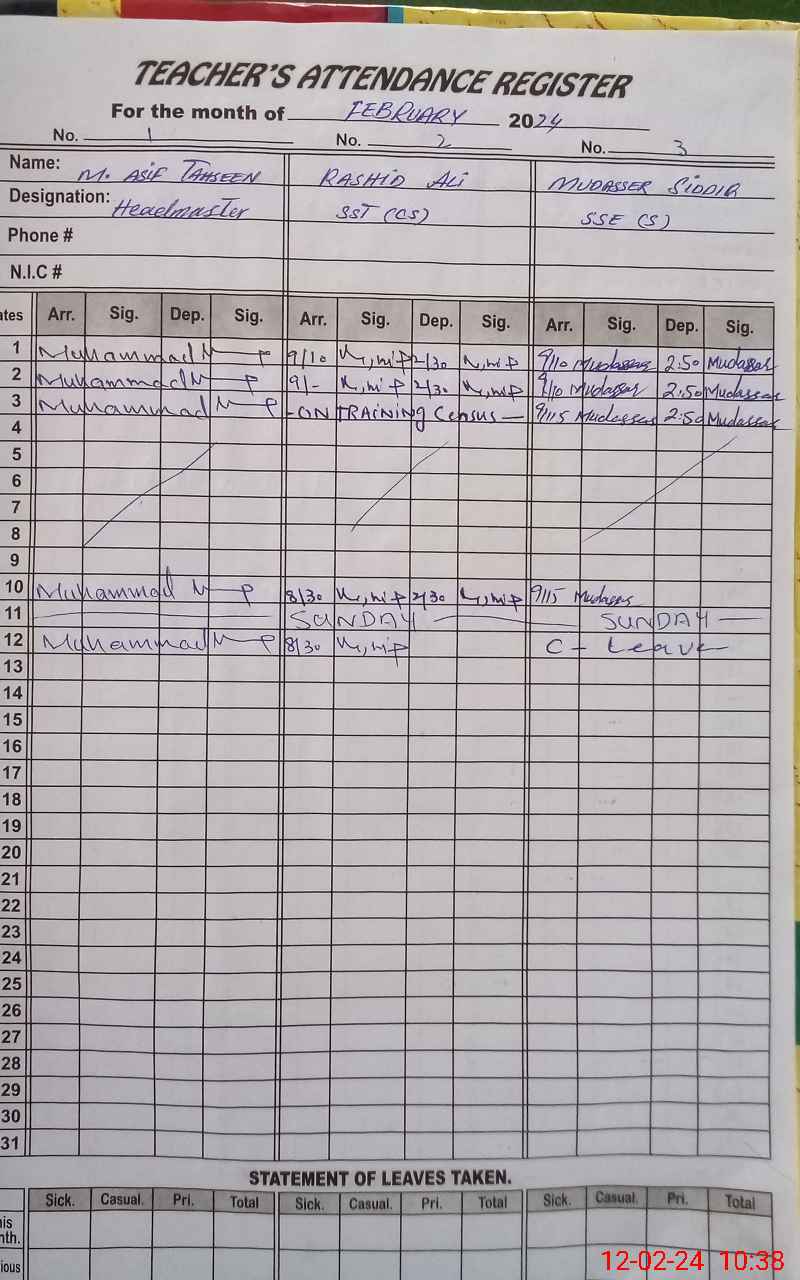 TEACHER'S ATTENDANCE REGISTER
For the month of FEBRUARY 2024
No. 1 No. 2 No. 3
Name: M. ASIF TAHSEEN RASHID ALI MUDASSER SIDDIR
Designation: Headmaster SST (CS) SSE (S)
Phone #
N.I.C #
ates Arr. Sig. Dep. Sig. Arr. Sig. Dep. Sig. Arr. Sig. Dep. Sig.
1 Muhammad 9/10 2/30 9/10 Mudasser 2:50 Mudasser
2 Muhammad 9/- 2/30 9/10 Mudasser 2:50 Mudasser
3 Muhammad - ON TRAINING Census - 9/15 Mudasser 2:50 Mudasser
4
5
6
7
8
9
10 Muhammad 8/30 2/30 9/15 Mudasser
11 SUNDAY SUNDAY
12 Muhammad 8/30 C - Leave
13
14
15
16
17
18
19
20
21
22
23
24
25
26
27
28
29
30
31
STATEMENT OF LEAVES TAKEN.
Sick. Casual. Pri. Total Sick. Casual. Pri. Total Sick. Casual. Pri. Total
is
nth.
ious
12-02-24 10:38